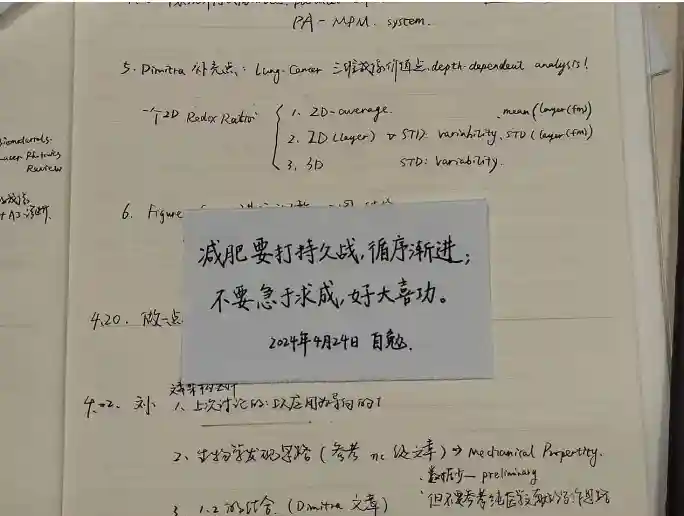 PA-MPM. system.
5. Dimitra 补充点: Lung Cancer 三维成像价值点, depth-dependent analysis!
一个2D Redox Ratio:
1. 2D-average. mean(layer(fm)
2. 2D(layer) STD variability. STD(layer(fm)
3. 3D STD: variability.
Review
6. Figure
减肥要打持久战,循序渐进;
不要急于求成,好大喜功。
2024年4月24日 自勉.
4.20. 做一点
刘 1. 上次讨论的: 以应用为导向的!
2. 生物学发现思路 (参考 nc 级文章) → Mechanical Propertity.
数据少 — preliminary
3 1.2 的结合. (Dimitra 文章)